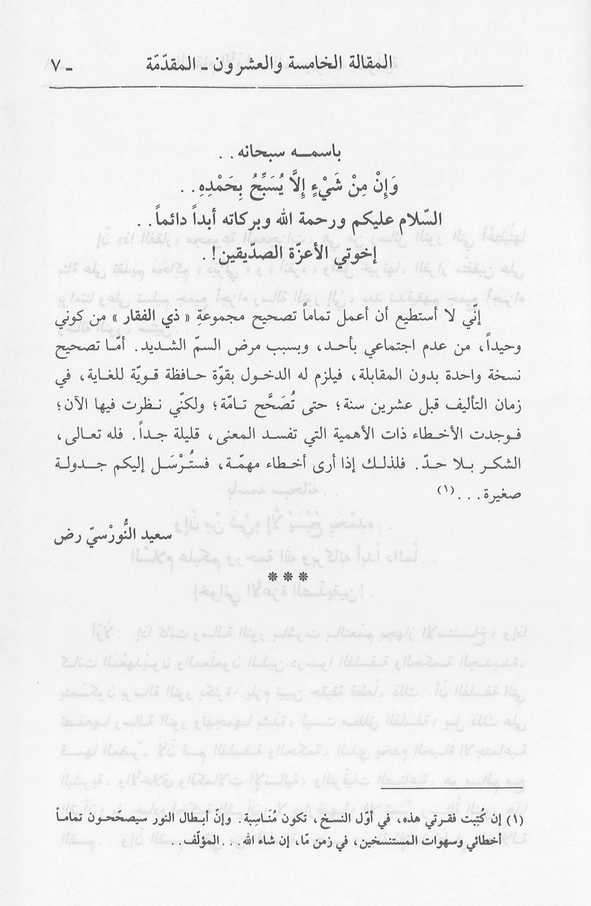 المقالة الخامسة والعشرون ـ المقدّمة ـ ٧
باسمــه سبحانه . .
وَإِنْ مِنْ شَيْءٍ إِلَّا يُسَبِّحُ بِحَمْدِهِ . .
السّلام عليكم ورحمة الله وبركاته أبداً دائماً . .
إخوتي الأعزّة الصدّيقين ! .
إنّي لا أستطيع أن أعمل تماماً تصحيح مجموعةِ « ذي الفقار » من كوني
وحيداً ، من عدم اجتماعي بأحـد ، وبسبب مرض السمّ الشديد . أمّا تصحيح
نسخة واحدة بدون المقابلة ، فيلزم له الدخـول بقوّة حافظة قويّة للغاية ، في
زمان التأليف قبل عشرين سنة ؛ حتى تُصَحَّح تامّة ؛ ولكنّي نظرت فيها الآن ؛
فوجدت الأخطاء ذات الأهمية التي تفسد المعنى ، قليلة جداً . فله تعالى ،
الشكر بـلا حدّ . فلذلك إذا أرى أخطاء مهمّة ، فستُرْسَل إليكم جــدولة
صغيرة . . . (١)
سعيد النُّورْسيّ رض
* * *
(١) إن كُتِبت فقرتي هذه ، في أوّل النسخ ، تكون مُنَاسِبة . وإنّ أبطال النور سيصحّحون تماماً
أخطائي وسهوات المستنسخين ، في زمن مّا ، إن شاء الله . . . المؤلّف . .